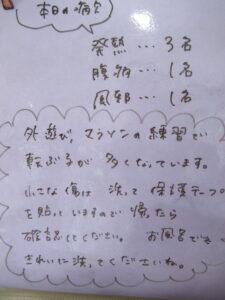 本日の病欠
発熱…3名
腹痛…1名
風邪…1名
外遊び、マラソンの練習でい
転ぶ子が多くなっています。
小さな傷は洗って保護テープ
を貼っていますので帰ったら
確認してください。お風呂でも
きれいに洗ってくださいね。